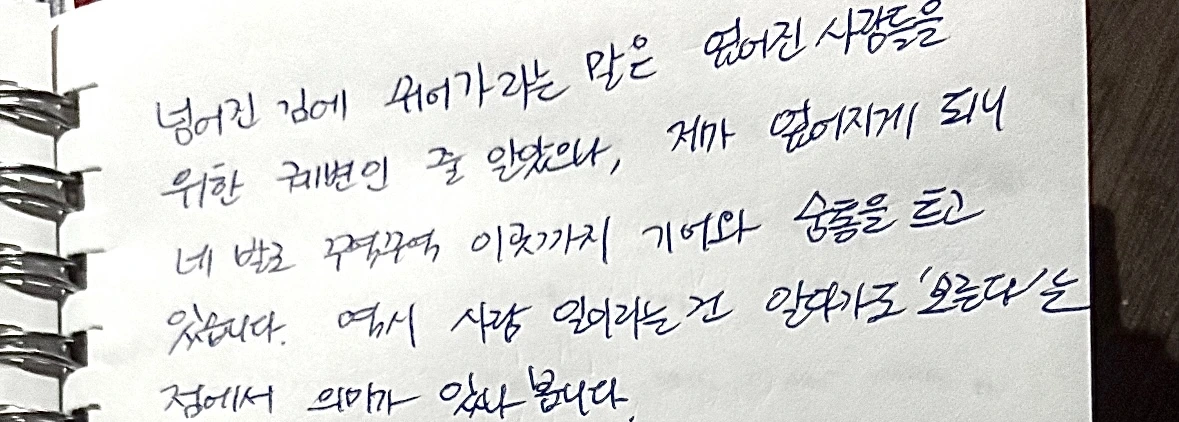 넘어진 김에 쉬어가라는 말은 엎어진 사람들을
위한 궤변인 줄 알았으나, 제가 엎어지게 되니
네 발로 꾸역꾸역 이곳까지 기어와 숨통을 트고
있습니다. 역시 사람 일이라는 건 알다가도 '모른다'는
점에서 의미가 있나 봅니다.